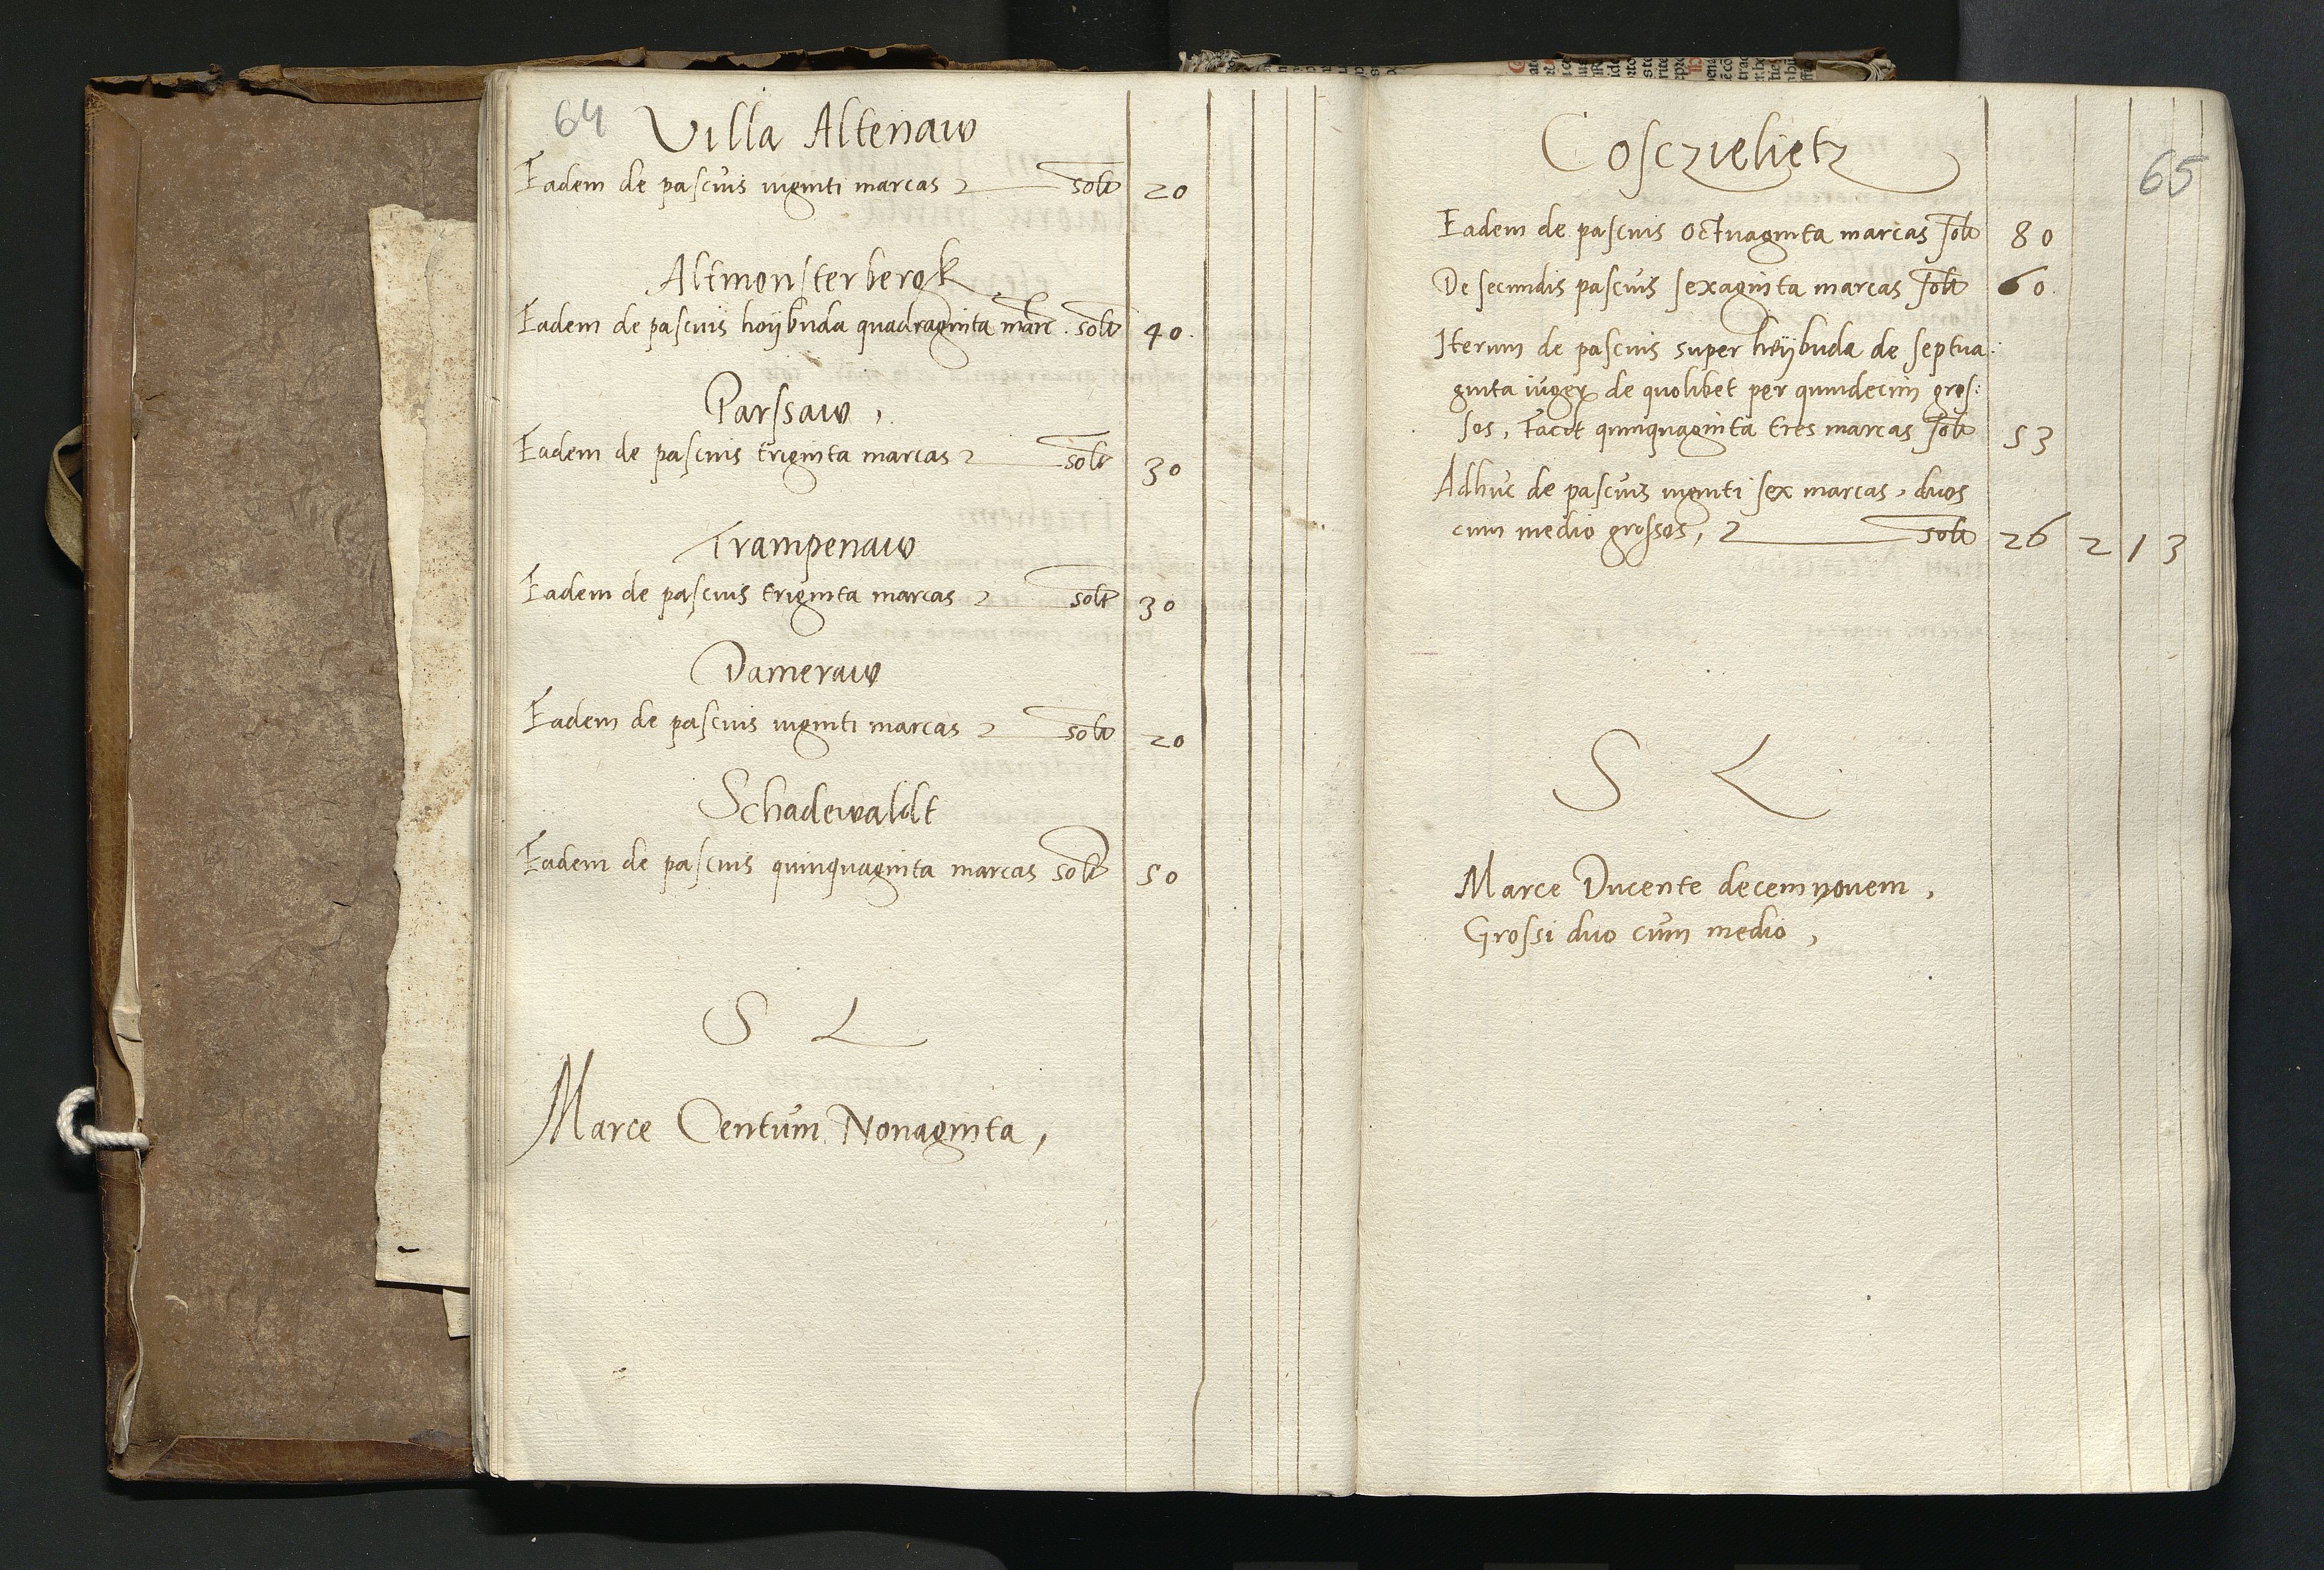 64
Villa Altenaw
Eadem de pascuis viginti marcas solt 20
Altmonsterbergk
Eadem de pascuis hoÿbuda quadraginta marc. solt 40.
Parssaw,
Eadem de pascuis triginta marcas solt 30
Trampenaw
Eadem de pascuis triginta marcas solt 30
Dameraw
Eadem de pascuis viginti marcas solt 20
Schadewaldt
Eadem de pascuis quinquaginta marcas solt 50
S L
Marce Centum Nonaginta,
65
Cosczielietz
Eadem de pascuis octuaginta marcas solt 80
De secundis pascuis sexaginta marcas solt 60.
Iterum de pascuis super hoÿbuda de septua:
ginta iuger de quolibet per quindecim gros:
sos, Facit quinquaginta tres marcas solt 53
Adhuc de pascuis viginti sex marcas, duos
cum medio grossos, solt 26 2 1 3
S L
Marce Ducente decem novem,
Grossi duo cum medio,